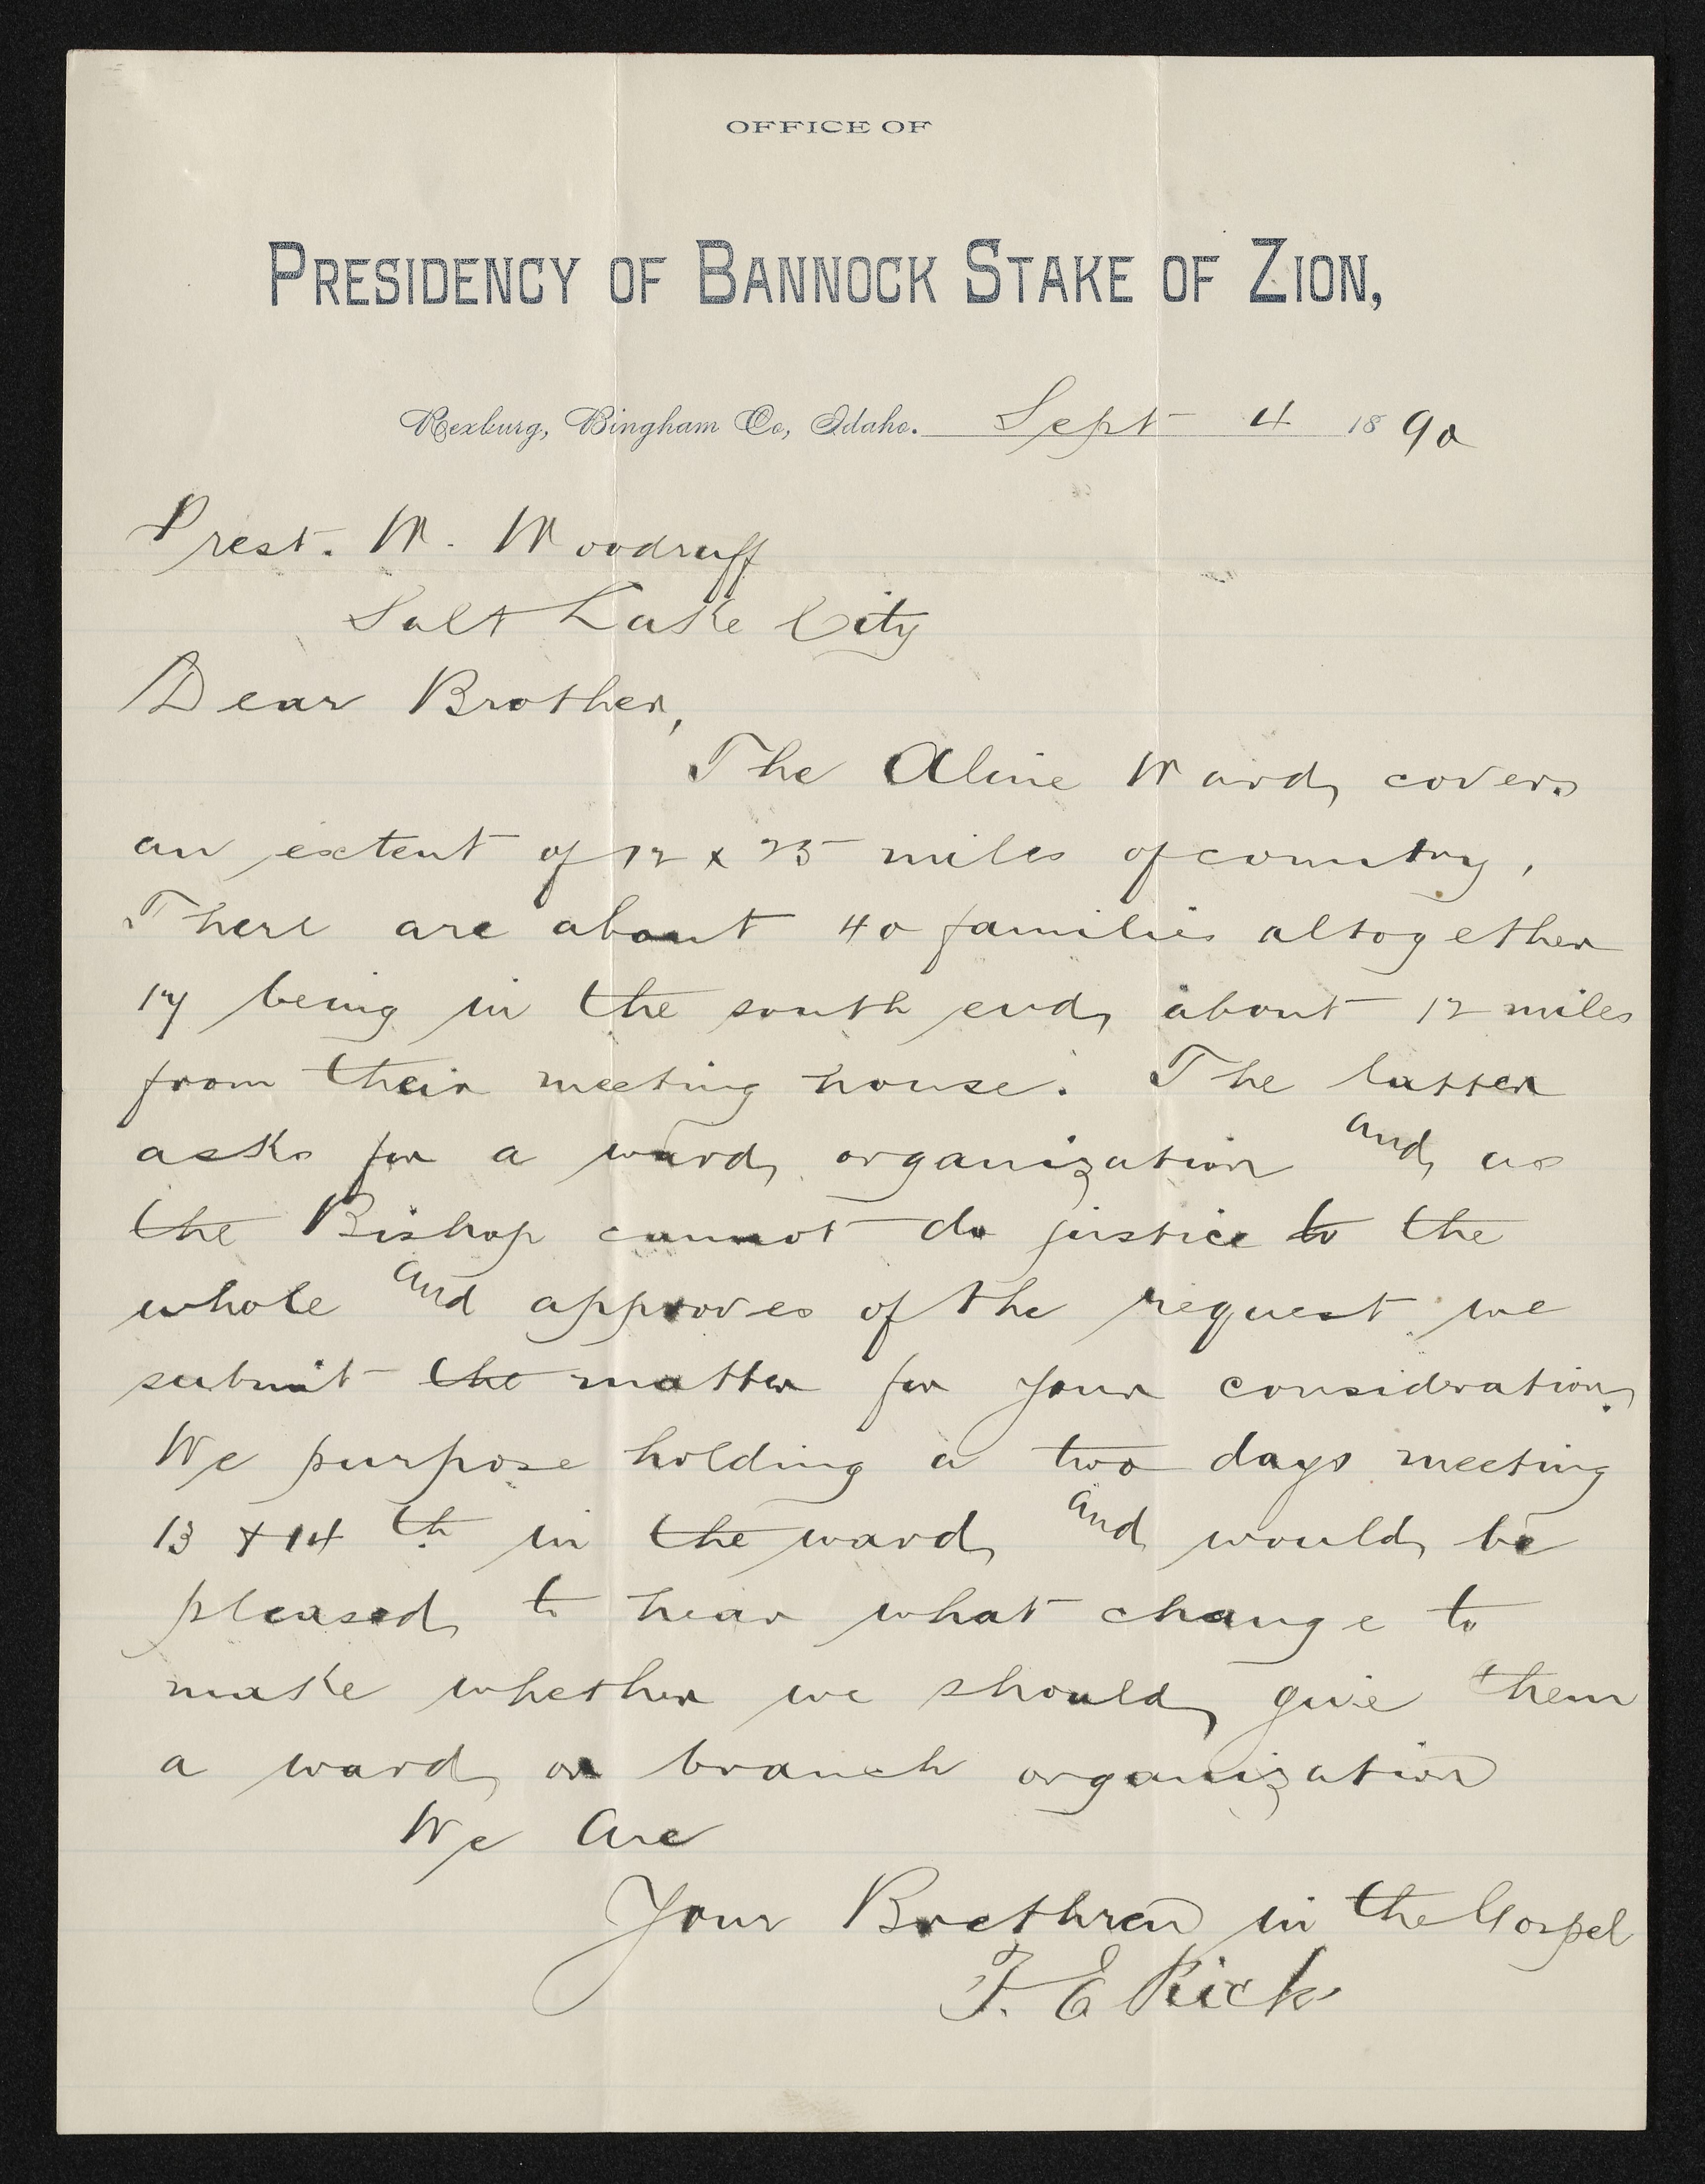 OFFICE OF
PRESIDENCY OF BANNOCK STAKE OF ZION,
Rexburg, Bingham Co, Idaho. Sept 4 1890
Prest. W. Woodruff
Salt Lake City
Dear Brother,
The Aline Ward covers
an extent of 12 x 25 miles of country,
There are about 40 families altogether
17 being in the south end about 12 miles
from their meeting house. The latter
asks for a ward organization and as
the Bishop cannot do justice to the
whole and approves of the request we
submit the matter for your consideration.
We purpose holding a two days meeting
13 & 14th in the ward and would be
pleased to hear what change to
make whether we should give them
a ward or branch organization
We are
Your Brethren in the Gospel
T. E. Ricks